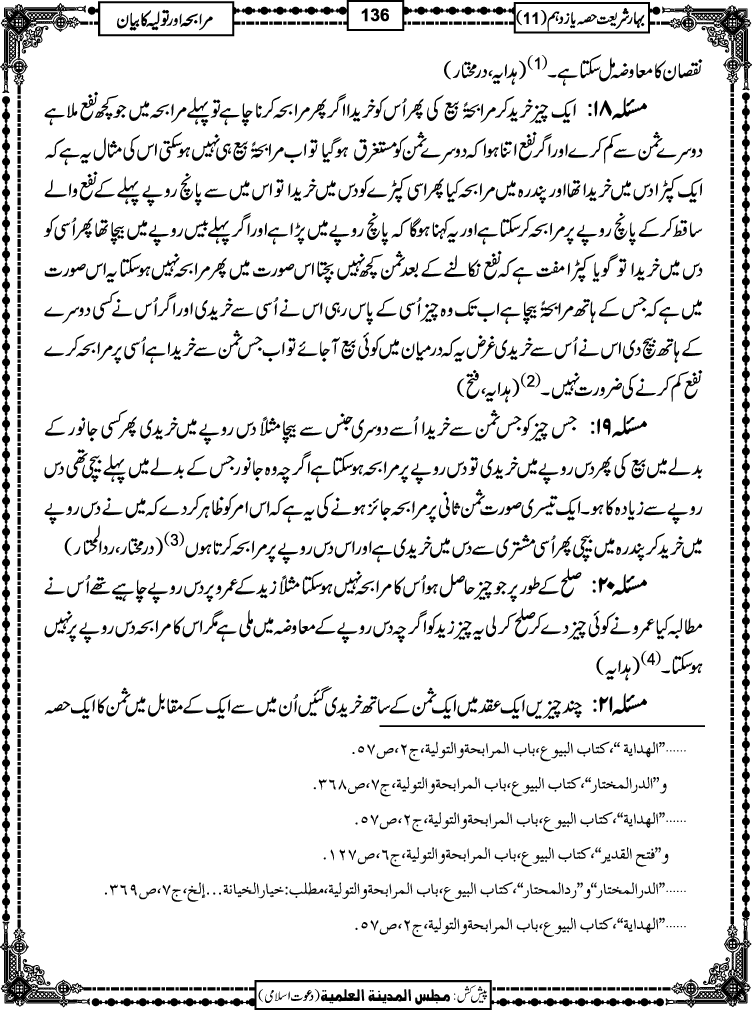 بہار شریعت حصہ یازدہم (11)
136
مرابحہ اور تولیہ کا بیان
نقصان کا معاوضہ مل سکتا ہے۔(1) (ہدایہ، درمختار)
مسئلہ ۱۸: ایک چیز خرید کر مرابحۃً بیع کی پھر اُس کو خریدا اگر پھر مرابحہ کرنا چاہے تو پہلے مرابحہ میں جو کچھ نفع ملا ہے
دوسرے ثمن سے کم کرے اور اگر نفع اتنا ہوا کہ دوسرے ثمن کو مستغرق ہوگیا تو اب مرابحۃً بیع ہی نہیں ہوسکتی اس کی مثال یہ ہے کہ
ایک کپڑا دس میں خریدا تھا اور پندرہ میں مرابحہ کیا پھر اسی کپڑے کو دس میں خریدا تو اس میں سے پانچ روپے پہلے کے نفع والے
ساقط کرکے پانچ روپے پر مرابحہ کرسکتا ہے اور یہ کہنا ہوگا کہ پانچ روپے میں پڑا ہے اور اگر پہلے بیس روپے میں بیچا تھا پھر اُسی کو
دس میں خریدا تو گویا کپڑا مفت ہے کہ نفع نکالنے کے بعد ثمن کچھ نہیں بچتا اس صورت میں پھر مرابحہ نہیں ہوسکتا یہ اس صورت
میں ہے کہ جس کے ہاتھ مرابحۃً بیچا ہے اب تک وہ چیز اُسی کے پاس رہی اس نے اُسی سے خریدی اور اگر اُس نے کسی دوسرے
کے ہاتھ بیچ دی اس نے اُس سے خریدی غرض یہ کہ درمیان میں کوئی بیع آجائے تو اب جس ثمن سے خریدا ہے اُسی پر مرابحہ کرے
نفع کم کرنے کی ضرورت نہیں۔(2) (ہدایہ، فتح)
مسئلہ ۱۹: جس چیز کو جس ثمن سے خریدا اُسے دوسری جنس سے بیچا مثلاً دس روپے میں خریدی پھر کسی جانور کے
بدلے میں بیع کی پھر دس روپے میں خریدی تو دس روپے پر مرابحہ ہوسکتا ہے اگرچہ وہ جانور جس کے بدلے میں پہلے بیچی تھی دس
روپے سے زیادہ کا ہو۔ ایک تیسری صورت ثمن ثانی پر مرابحہ جائز ہونے کی یہ ہے کہ اس امر کو ظاہر کردے کہ میں نے دس روپے
میں خرید کر پندرہ میں بیچی پھر اُسی مشتری سے دس میں خریدی ہے اور اس دس روپے پر مرابحہ کرتا ہوں(3) (درمختار، ردالمحتار)
مسئلہ ۲۰: صلح کے طور پر جو چیز حاصل ہو اُس کا مرابحہ نہیں ہوسکتا مثلاً زید کے عمرو پر دس روپے چاہیے تھے اُس نے
مطالبہ کیا عمرو نے کوئی چیز دے کر صلح کرلی یہ چیز زید کو اگرچہ دس روپے کے معاوضہ میں ملی ہے مگر اس کا مرابحہ دس روپے پر نہیں
ہوسکتا۔(4) (ہدایہ)
مسئلہ ۲۱: چند چیزیں ایک عقد میں ایک ثمن کے ساتھ خریدی گئیں اُن میں سے ایک کے مقابل میں ثمن کا ایک حصہ
......"الهداية"، كتاب البيوع، باب المرابحة والتولية، ج٢، ص٥٧.
و"الدرالمختار"، كتاب البيوع، باب المرابحة والتولية، ج٧، ص٣٦٨.
......"الهداية"، كتاب البيوع، باب المرابحة والتولية، ج٢، ص٥٧.
و"فتح القدير"، كتاب البيوع، باب المرابحة والتولية، ج٦، ص١٢٧.
......"الدرالمختار" و"ردالمحتار"، كتاب البيوع، باب المرابحة والتولية، مطلب: خيار الخيانة...إلخ، ج٧، ص٣٦٩.
......"الهداية"، كتاب البيوع، باب المرابحة والتولية، ج٢، ص٥٧.
پیش کش: مجلس المدینة العلمیة (دعوتِ اسلامی)